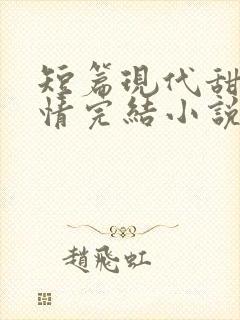 短篇現代甜
情完結小說
趙飛虹